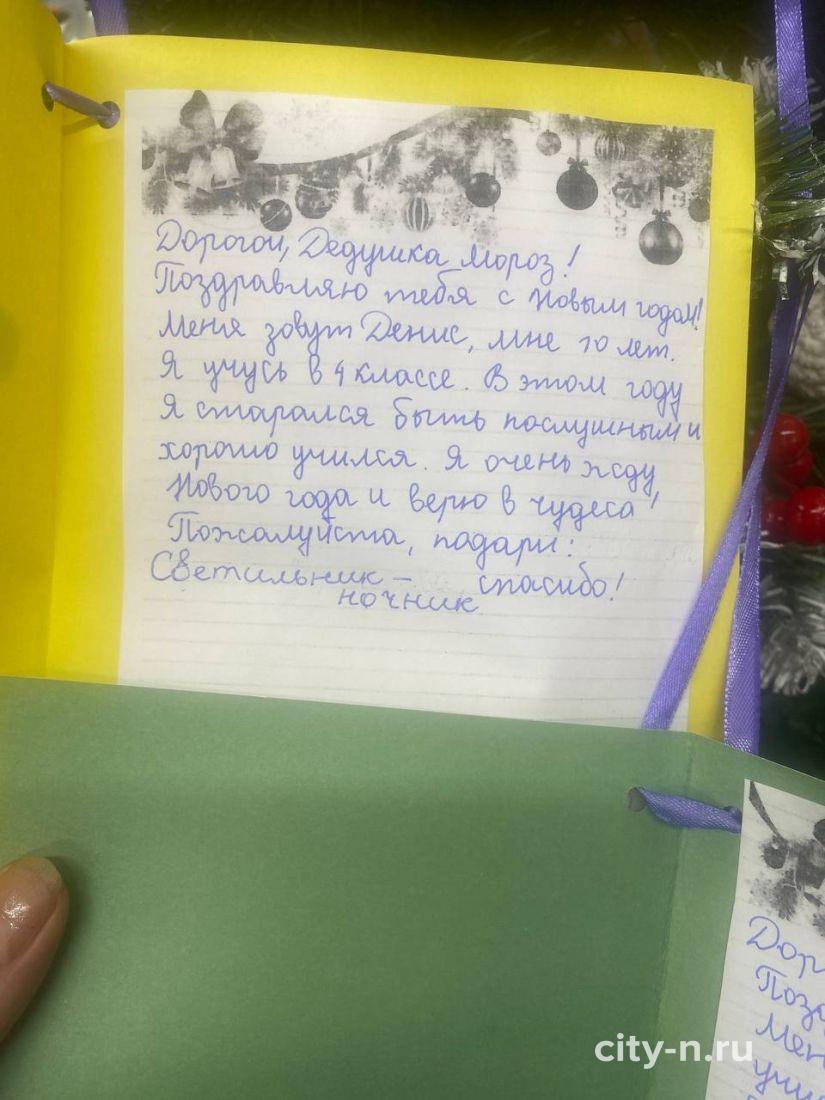 Дорогой, Дедушка Мороз!
Поздравляю тебя с Новым годом!
Меня зовут Денис, мне 10 лет.
Я учусь в 4 классе. В этом году
Я старался быть послушным и
хорошо учился. Я очень жду
Нового года и верю в чудеса!
Пожалуйста, подари:
Светильник - спасибо!
ночник
Дор
Позд
Мен
учу
city-n.ru